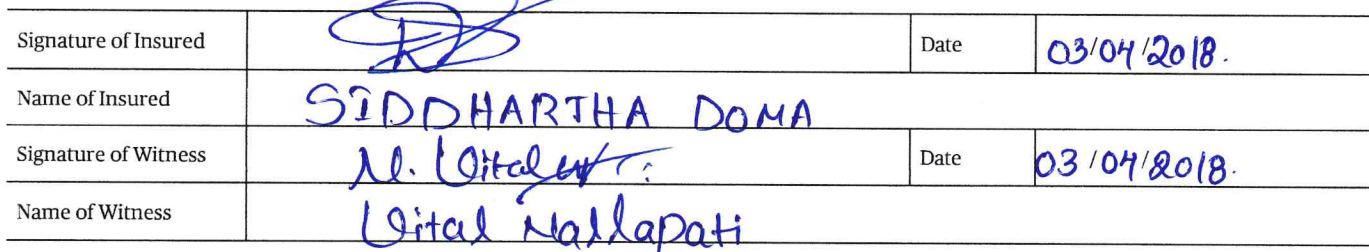 Signature of Insured Date 03/04/2018.
Name of Insured SIDDHARTHA DOMA
Signature of Witness Date 03/04/2018.
Name of Witness Vital Nallapati